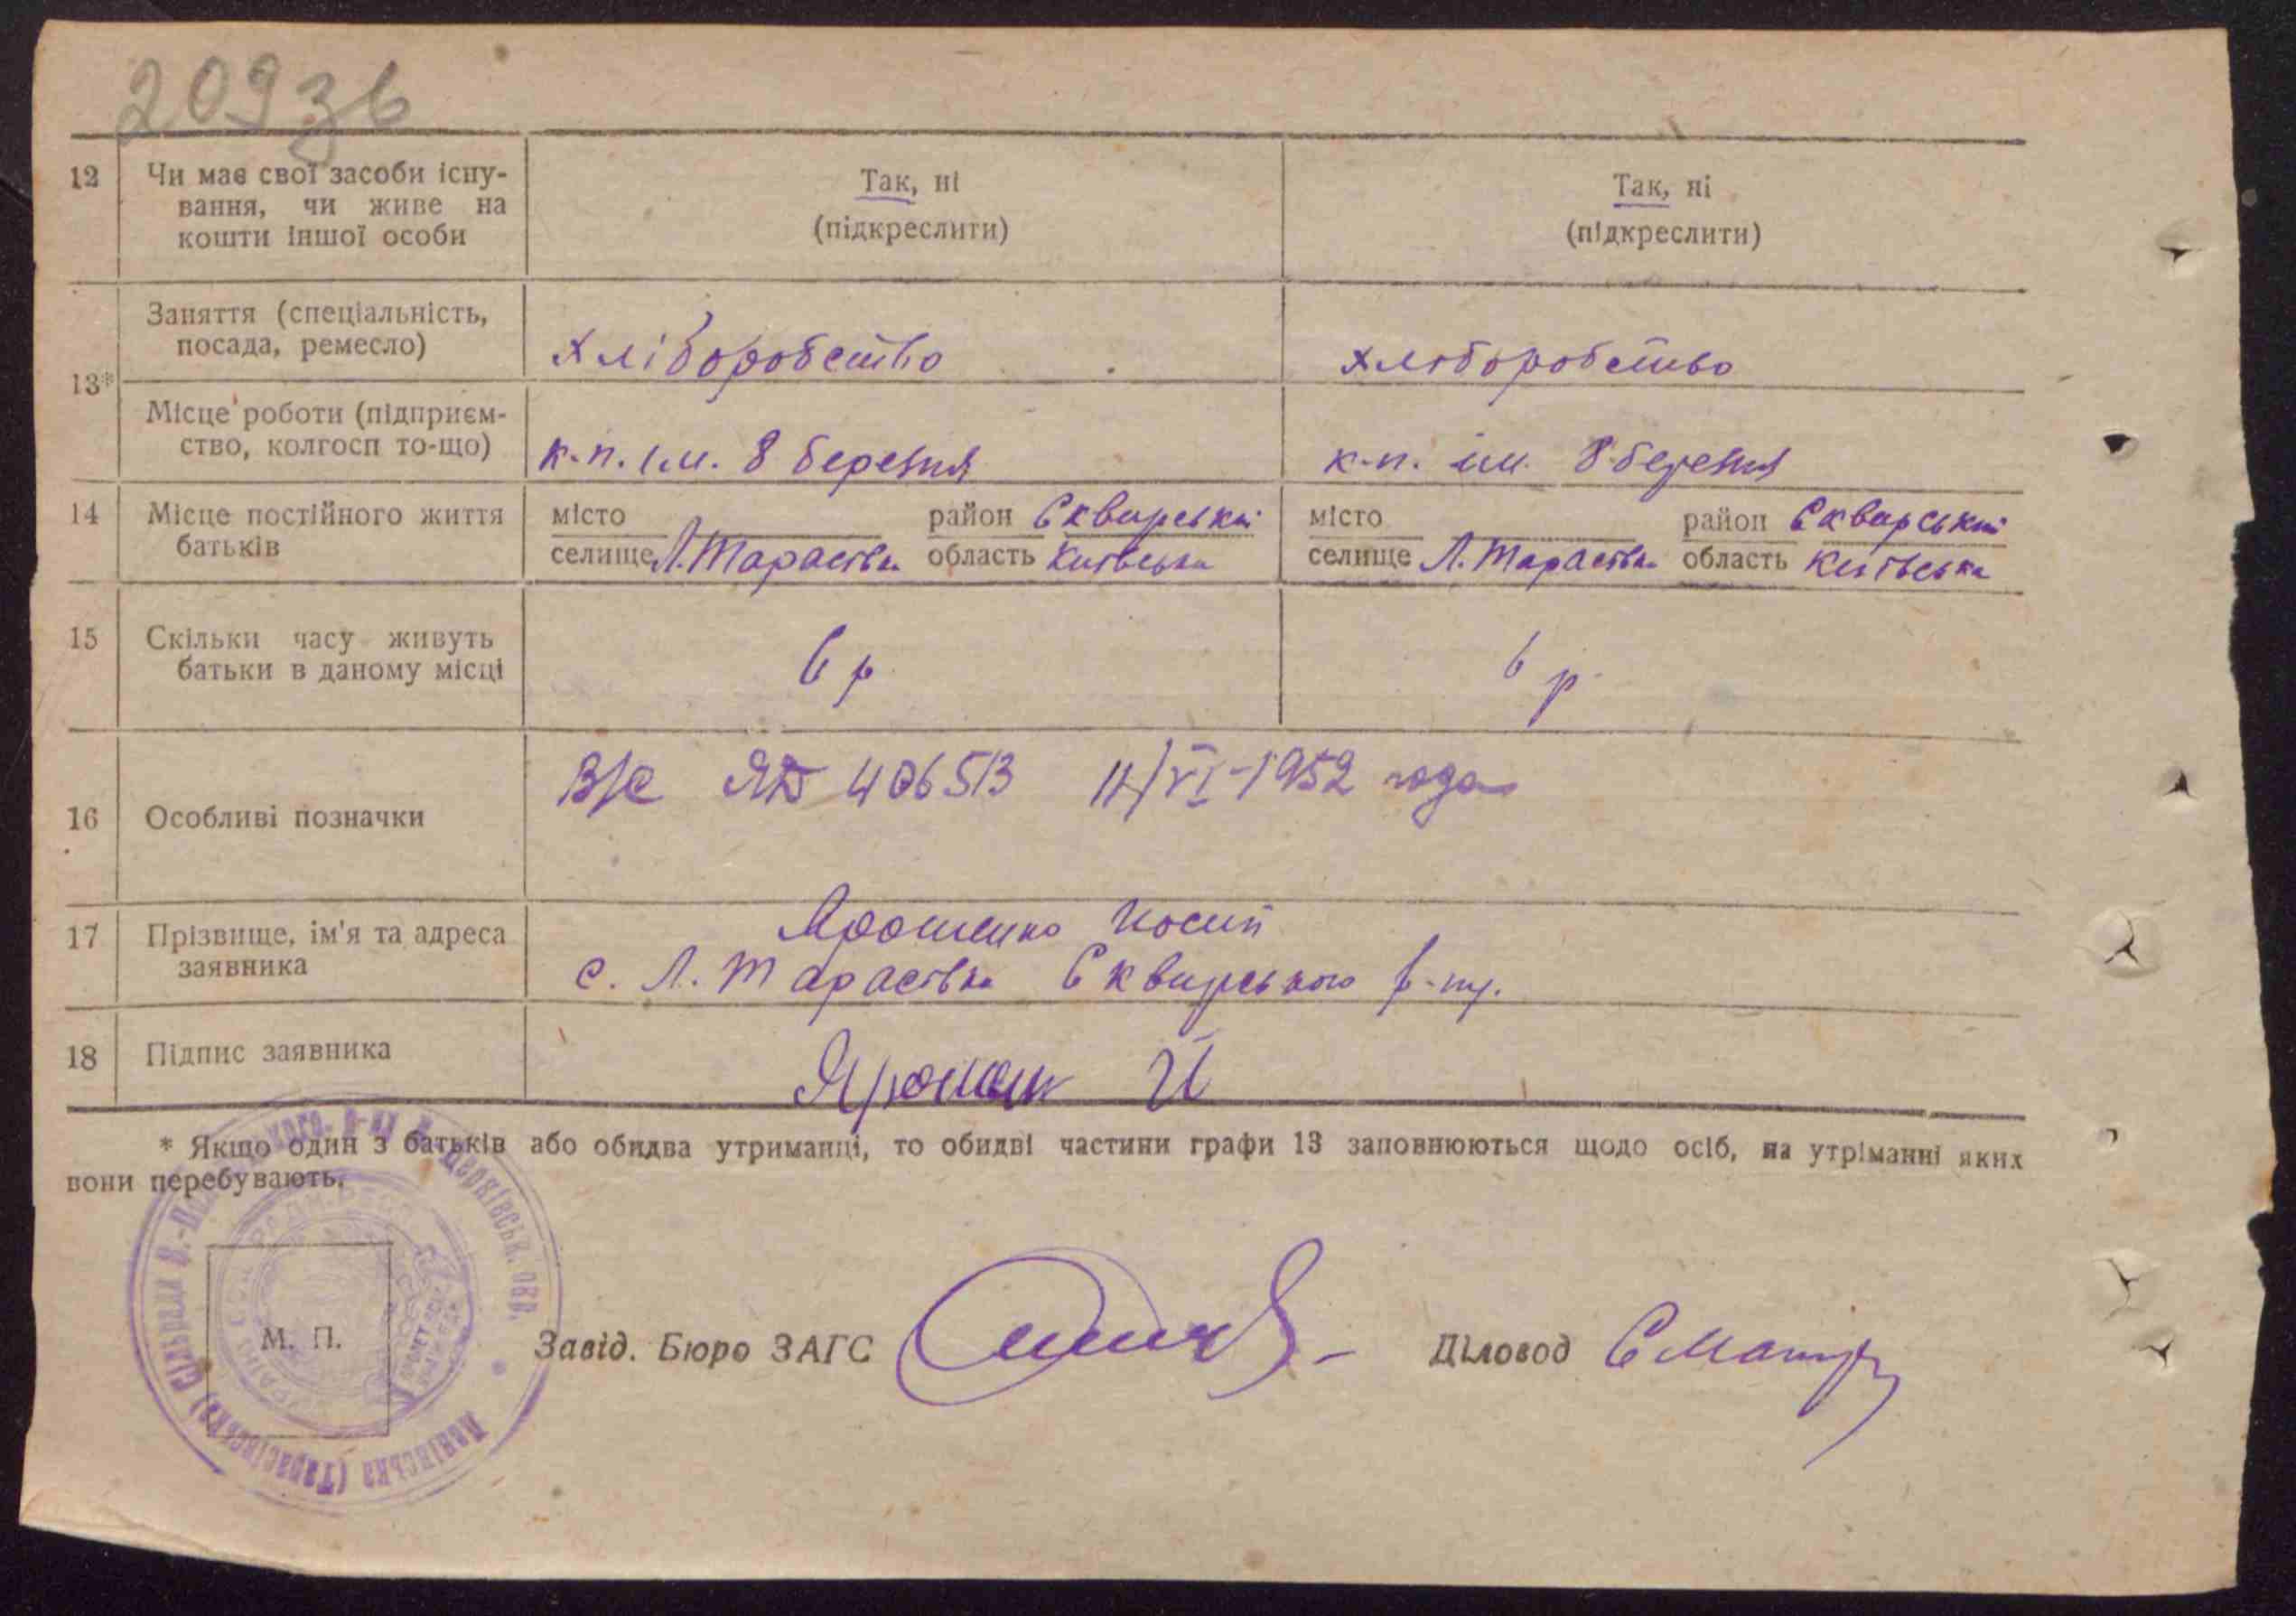 209зв
12 Чи має свої засоби існу-
вання, чи живе на
кошти іншої особи
Так, ні
(підкреслити)
Так, ні
(підкреслити)
13*
Заняття (спеціальність,
посада, ремесло)
хліборобство
хліборобство
Місце роботи (підприєм-
ство, колгосп то-що)
к.п. ім. 8 березня
к.п. ім. 8 березня
14 Місце постійного життя
батьків
місто район Сквирський
селище Л.Тарасівка область Київська
місто район Сквирський
селище Л.Тарасівка область Київська
15 Скільки часу живуть
батьки в даному місці
6 р
6 р.
16 Особливі позначки
В/с ЯБ 406513 14/VI-1952 года
17 Прізвище, ім'я та адреса
заявника
Ярошенко Йосип
с. Л. Тарасівка Сквирського р-ну.
18 Підпис заявника
* Якщо один з батьків або обидва утриманці, то обидві частини графи 13 заповнюються щодо осіб, на утріманні яких
вони перебувають.
М. П.
(Тарасівська) Сільрада
Завід. Бюро ЗАГС
Діловод